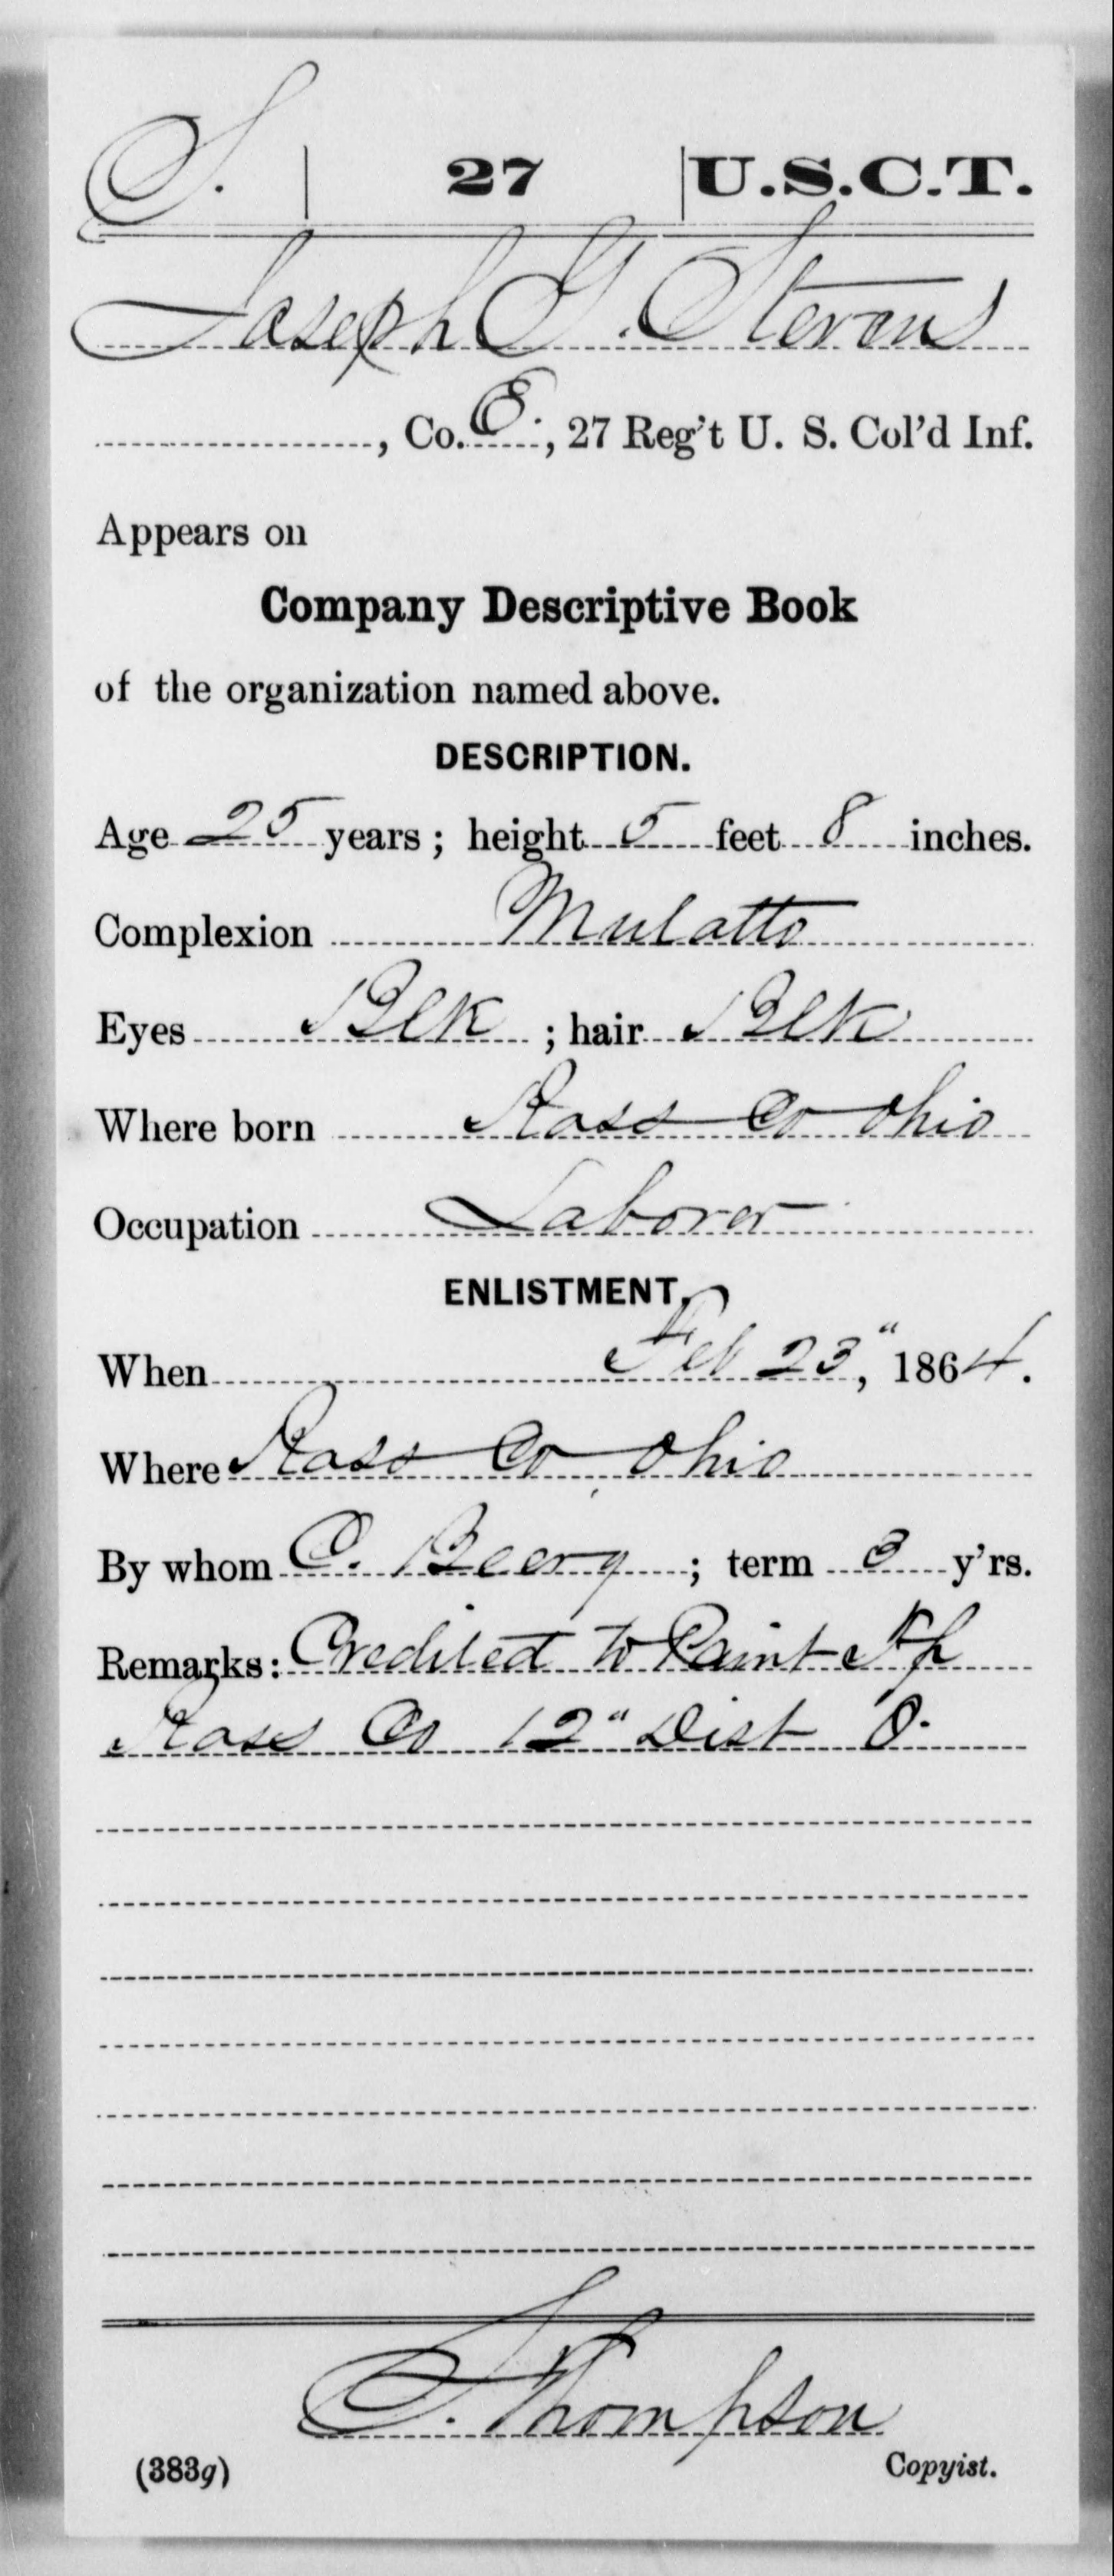 S. | 27 | U.S.C.T.
Joseph G. Stevens
, Co. E, 27 Reg't U. S. Col'd Inf.
Appears on
Company Descriptive Book
of the organization named above.
DESCRIPTION.
Age 25 years; height 5 feet 8 inches.
Complexion Mulatto
Eyes Blk; hair Blk
Where born Ross Co Ohio
Occupation Laborer
ENLISTMENT.
When Feb 23", 1864.
Where Ross Co Ohio
By whom C. Beery; term 3 y'rs.
Remarks: Credited to Paint Tp
Ross Co 12" Dist O.
S. Thompson
(383g) Copyist.